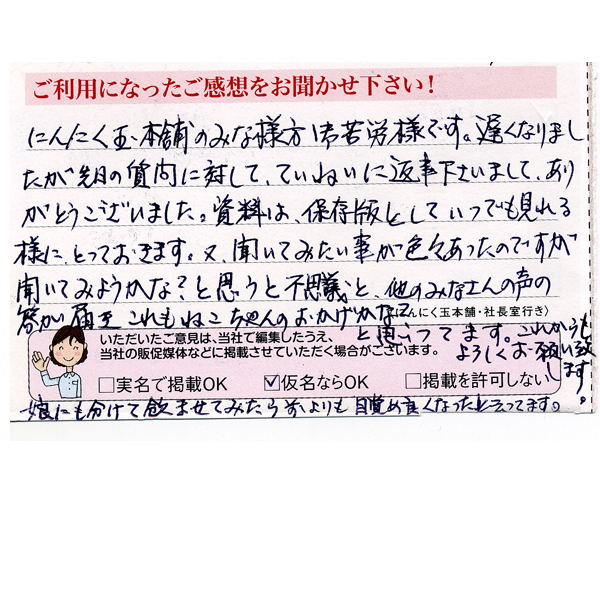 ご利用になったご感想をお聞かせ下さい!
にんにく玉本舗のみな様方御苦労様です。遅くなりまし
たが先日の質問に対して、ていねいに返事下さいまして、あり
がとうございました。資料は、保存版としていつでも見れる
様に、とっておきます。又、聞いてみたい事が色々あったのですが
聞いてみようかな?と思うと不思議と、他のみなさんの声の
答が届き これもねこちゃんのおかげかな?
(にんにく玉本舗・社長室行き)
と思いってます。これからも
よろしくお願い致
します。
いただいたご意見は、当社で編集したうえ、
当社の販促媒体などに掲載させていただく場合がございます。
□実名で掲載OK ☑仮名ならOK □掲載を許可しない
娘にも分けて飲ませてみたら前よりも 目覚め良くなったと云ってます。